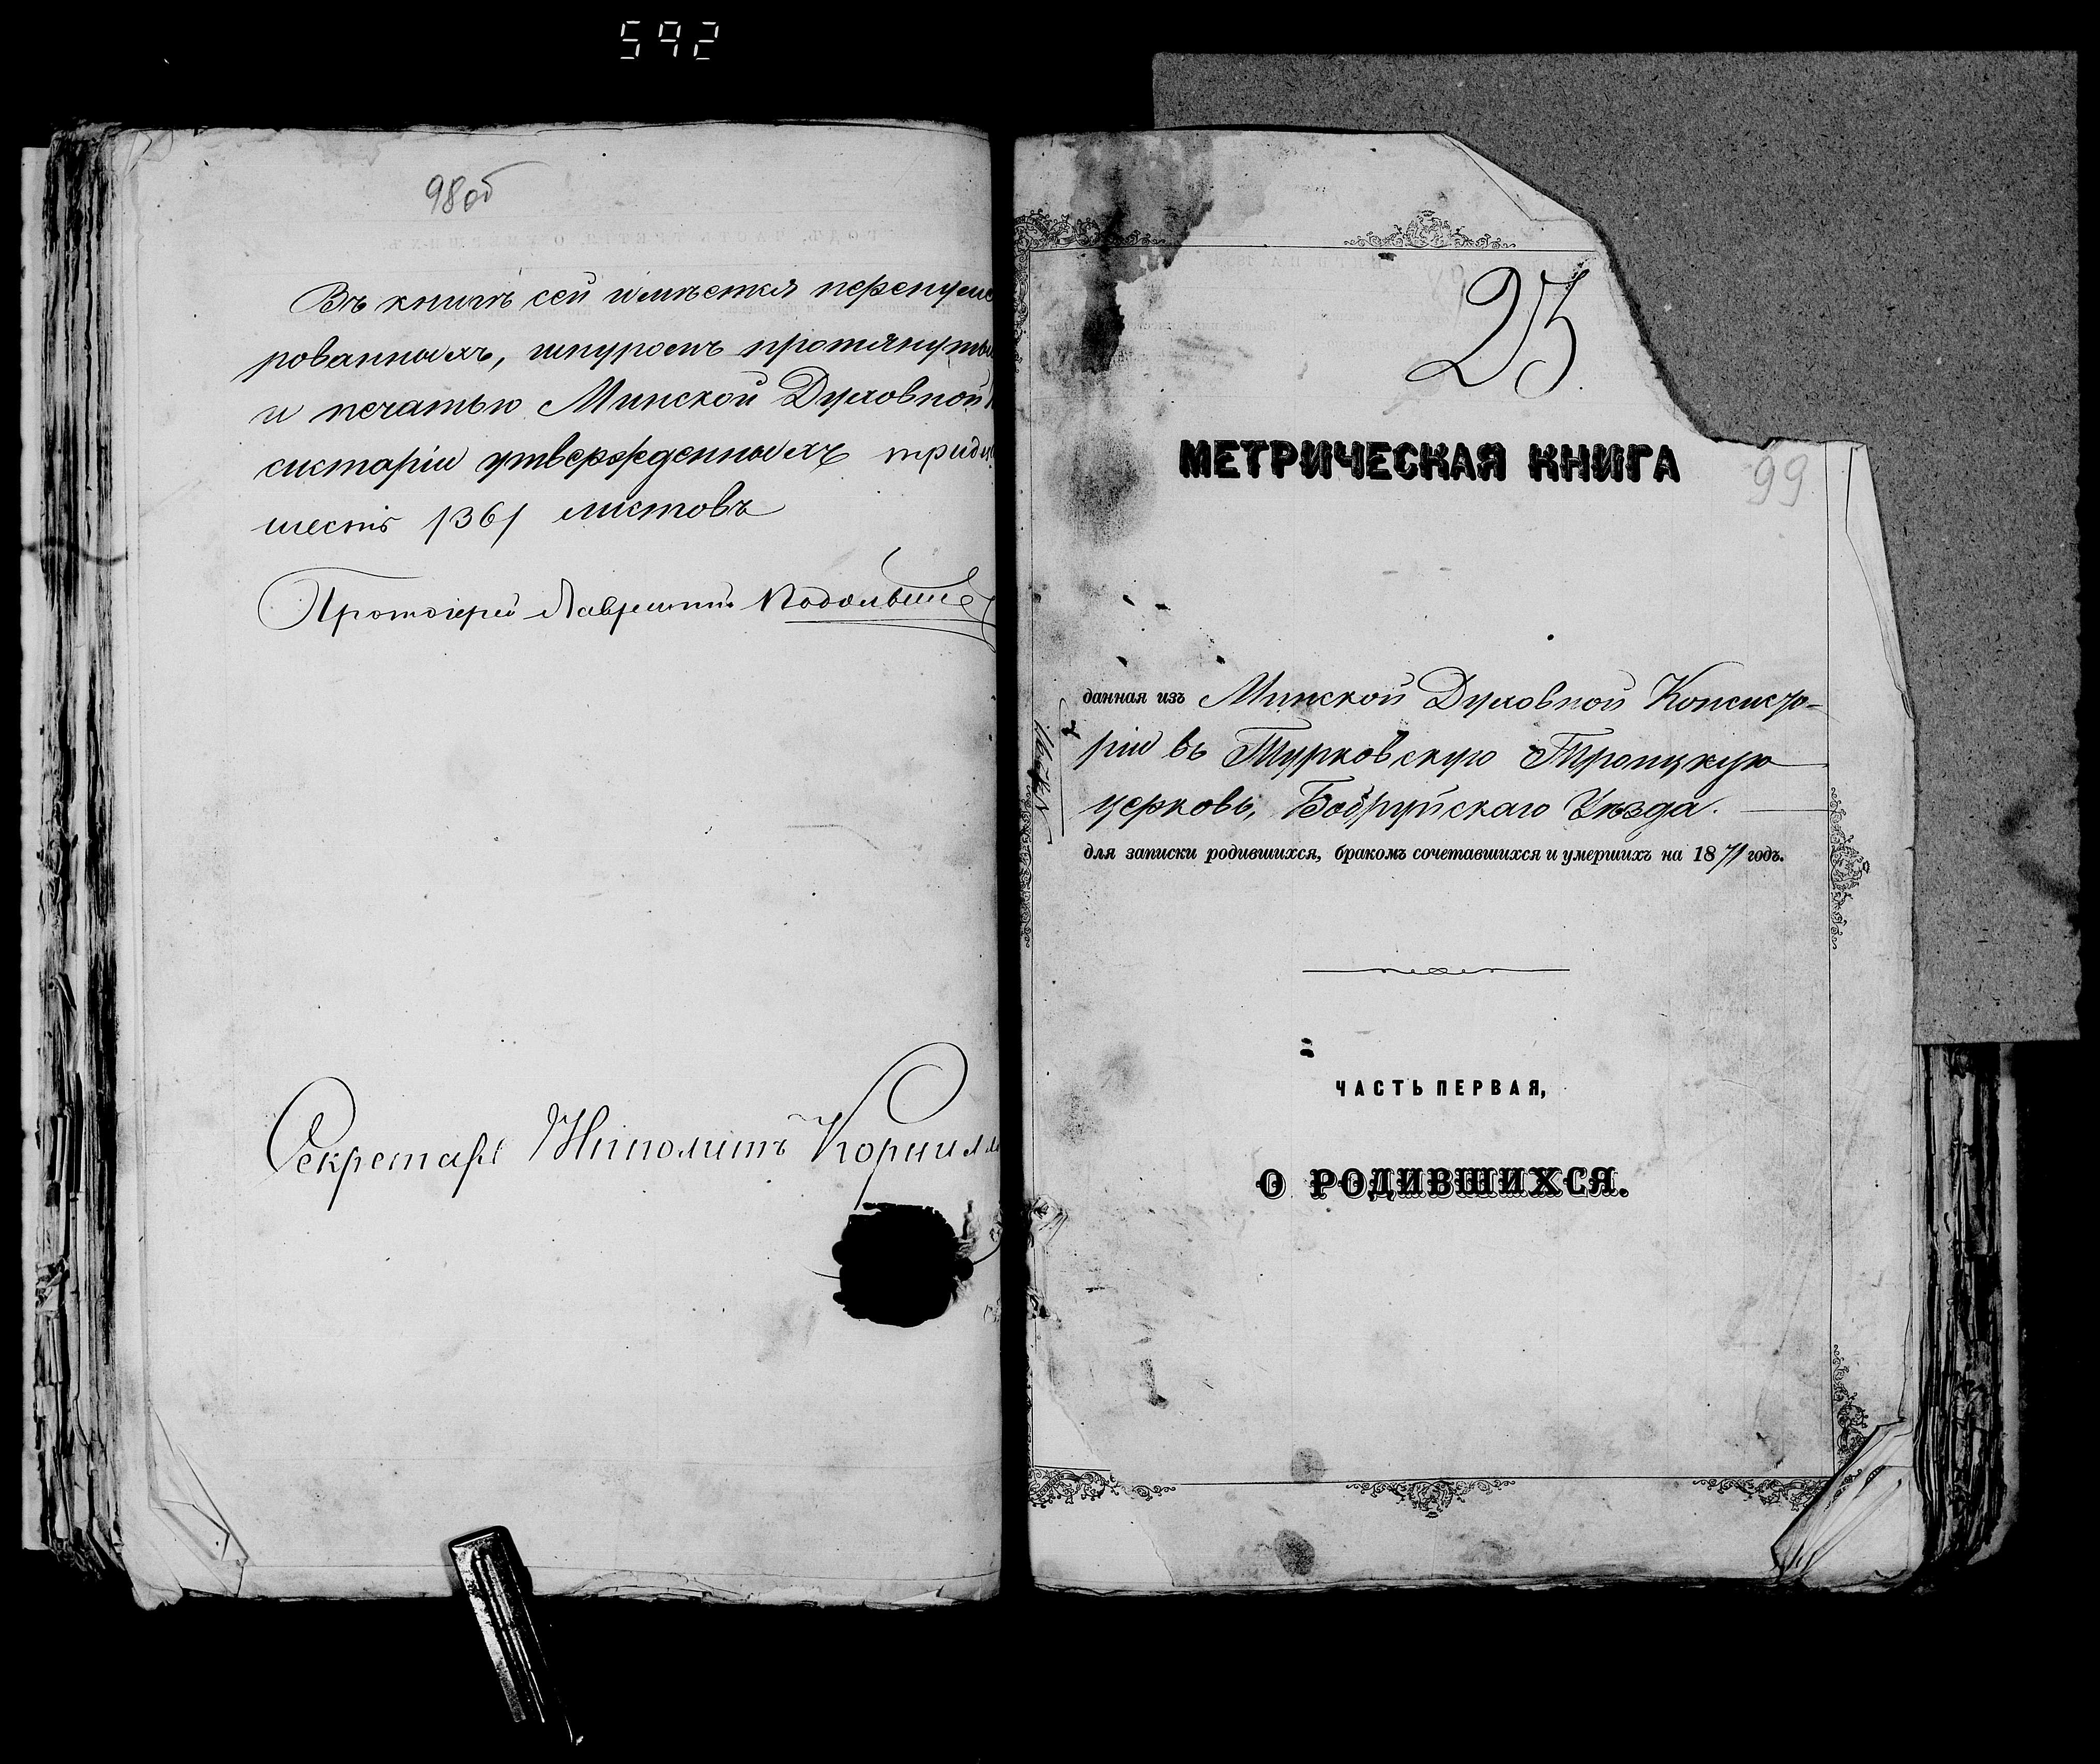 592
98 об
Въ книгѣ сей имѣется перенуме
рованныхъ, шнуромъ протянуты
и печатью Минской Духовной
систоріи утвержденныхъ триде
шесть /36/ листовъ
Протоіерей Лаврентій
Секретарь Иполитъ Корнил
25
МЕТРИЧЕСКАЯ КНИГА
99
данная изъ Минской Духовной Консисто-
ріи въ Турковскую Троицкую
церковь, Бобруйскаго Уѣзда.
для записки родившихся, бракомъ сочетавшихся и умершихъ на 1871 годъ.
ЧАСТЬ ПЕРВАЯ,
О РОДИВШИХСЯ.